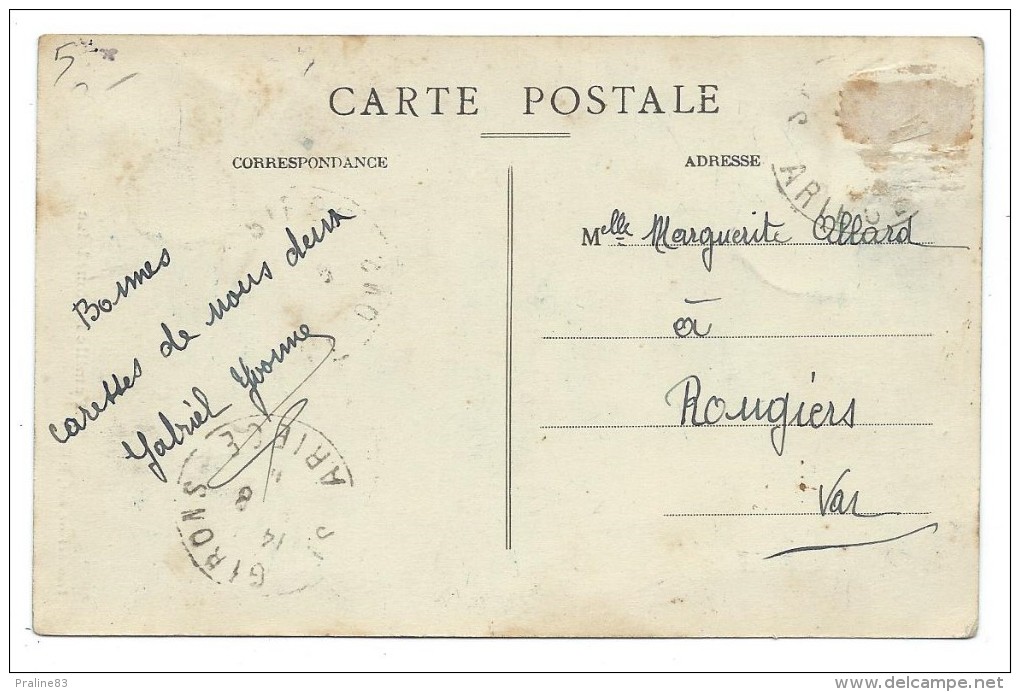 5
CARTE POSTALE
CORRESPONDANCE
ADRESSE
Bonnes
caresses de nous deux
Gabriel Yvonne
Melle Marguerite Allard
à
Rougiers
Var
ARIEGE
GIRONS
ARIEGE
14
8
Praline83
delcampe.net